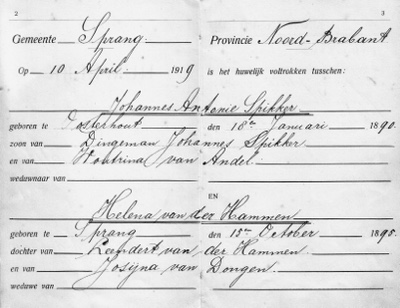 2 3
Gemeente Sprang. Provincie Noord-Brabant
Op 10 April 1919 is het huwelijk voltrokken tusschen:
Johannes Antonie Spikker
geboren te Oosterhout den 18en Januari 1890.
zoon van Dingeman Johannes Spikker
en van Woutrina van Andel.
wedewnaar van
EN
Helena van der Hammen
geboren te Sprang den 15en October 1895.
dochter van Leendert van der Hammen
en van Josijna van Dongen.
weduwe van